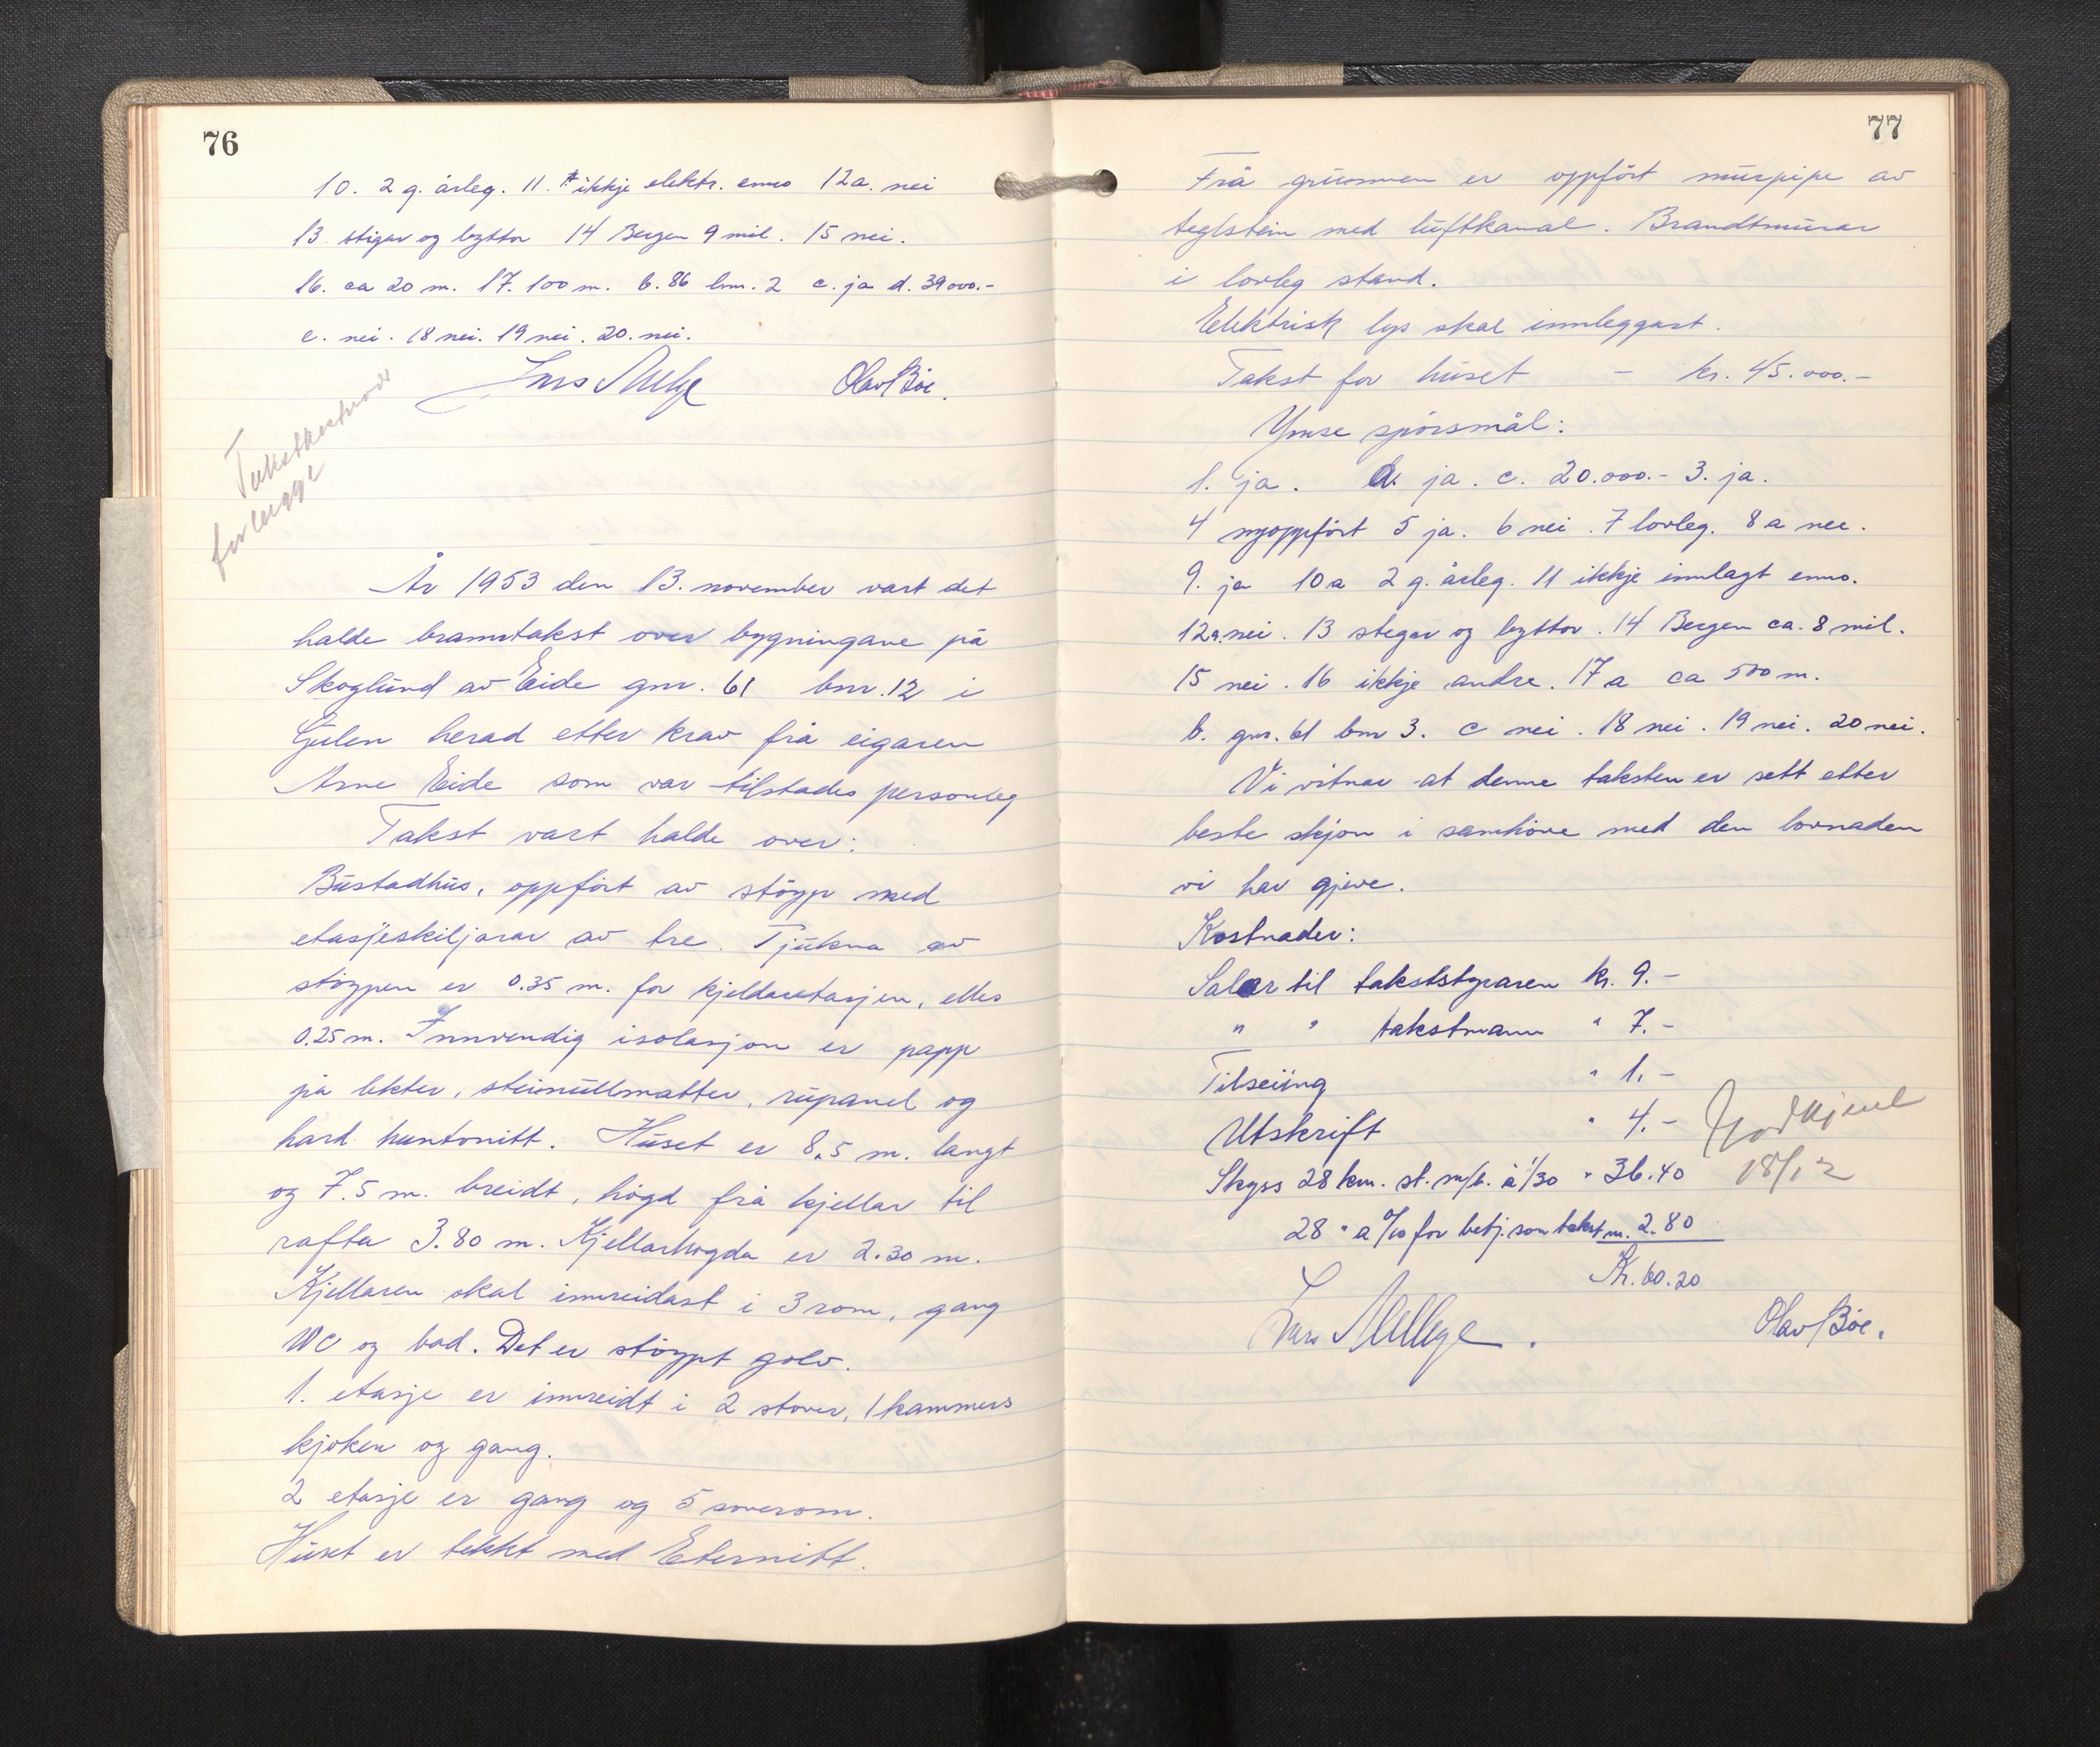 76
10. 2 g. årleg. 11. ikkje elektr. enno 12a. nei
13. stigar og byttor 14 Bergen 9 mil. 15 nei.
16. ca 20 m. 17. 100 m. b. 86 bnr. 2 c. ja d. 39000.-
e. nei. 18 nei. 19 nei. 20. nei.
Olav Böe.
År 1953 den 13. november vart det
halde branntakst over bygningane på
Skoglund av Eide gnr. 61 bnr. 12 i
Gulen herad etter krav frå eigaren
Arne Eide som var tilstades personleg
Takst vart halde over:
Bustadhus, oppfört av stöypt med
etasjeskiljarar av tre. Tjukna av
stöypen er 0.35 m. for kjellaretasjen, elles
0.25 m. Innvendig isolasjon er papp
på lekter, steinullmatter, rupanel og
hard huntonitt. Huset er 8,5 m. langt
og 7.5 m. breidt, högd frå kjellar til
rafta 3.80 m. Kjellarhögda er 2.30 m.
Kjellaren skal innreidast i 3 rom, gang
WC og bad. Det er stöypt golv.
1. etasje er innreidt i 2 stover, 1 kammers
kjöken og gang.
2 etasje er gang og 5 soverom.
Huset er tekkt med Eternitt.
77
Frå grunnen er oppfört murpipe av
teglstein med luftkanal. Brandtmurar
i lovleg stand.
Elektrisk lys skal innleggast.
Takst for huset - kr. 45.000.-
Ymse spörsmål:
1. ja. ja. c. 20.000.- 3. ja.
4 nyoppfört 5 ja. 6 nei. 7 lovleg. 8 a nei.
9. ja 10 a 2 g. årleg. 11 ikkje innlagt enno.
12a. nei. 13 stegar og byttor. 14 Bergen ca. 8 mil.
15 nei. 16 ikkje andre. 17 a ca 500 m.
b. gnr. 61 bnr 3. c nei. 18 nei. 19 nei. 20 nei.
Vi vitnar at denne taksten er sett etter
beste skjön i samhöve med den lovnaden
vi har gjeve.
Kostnader:
Salær til takststyraren kr. 9.-
" " takstmann " 7.-
Tilseiing " 1.-
Utskrift " 4.-
Godkjent
18/12
Skyss 28 km. st. m/b. à 1/30 " 36.40
28 " a 0/10 for betj. som takstm. 2.80
Kr. 60.20
Olav Böe.